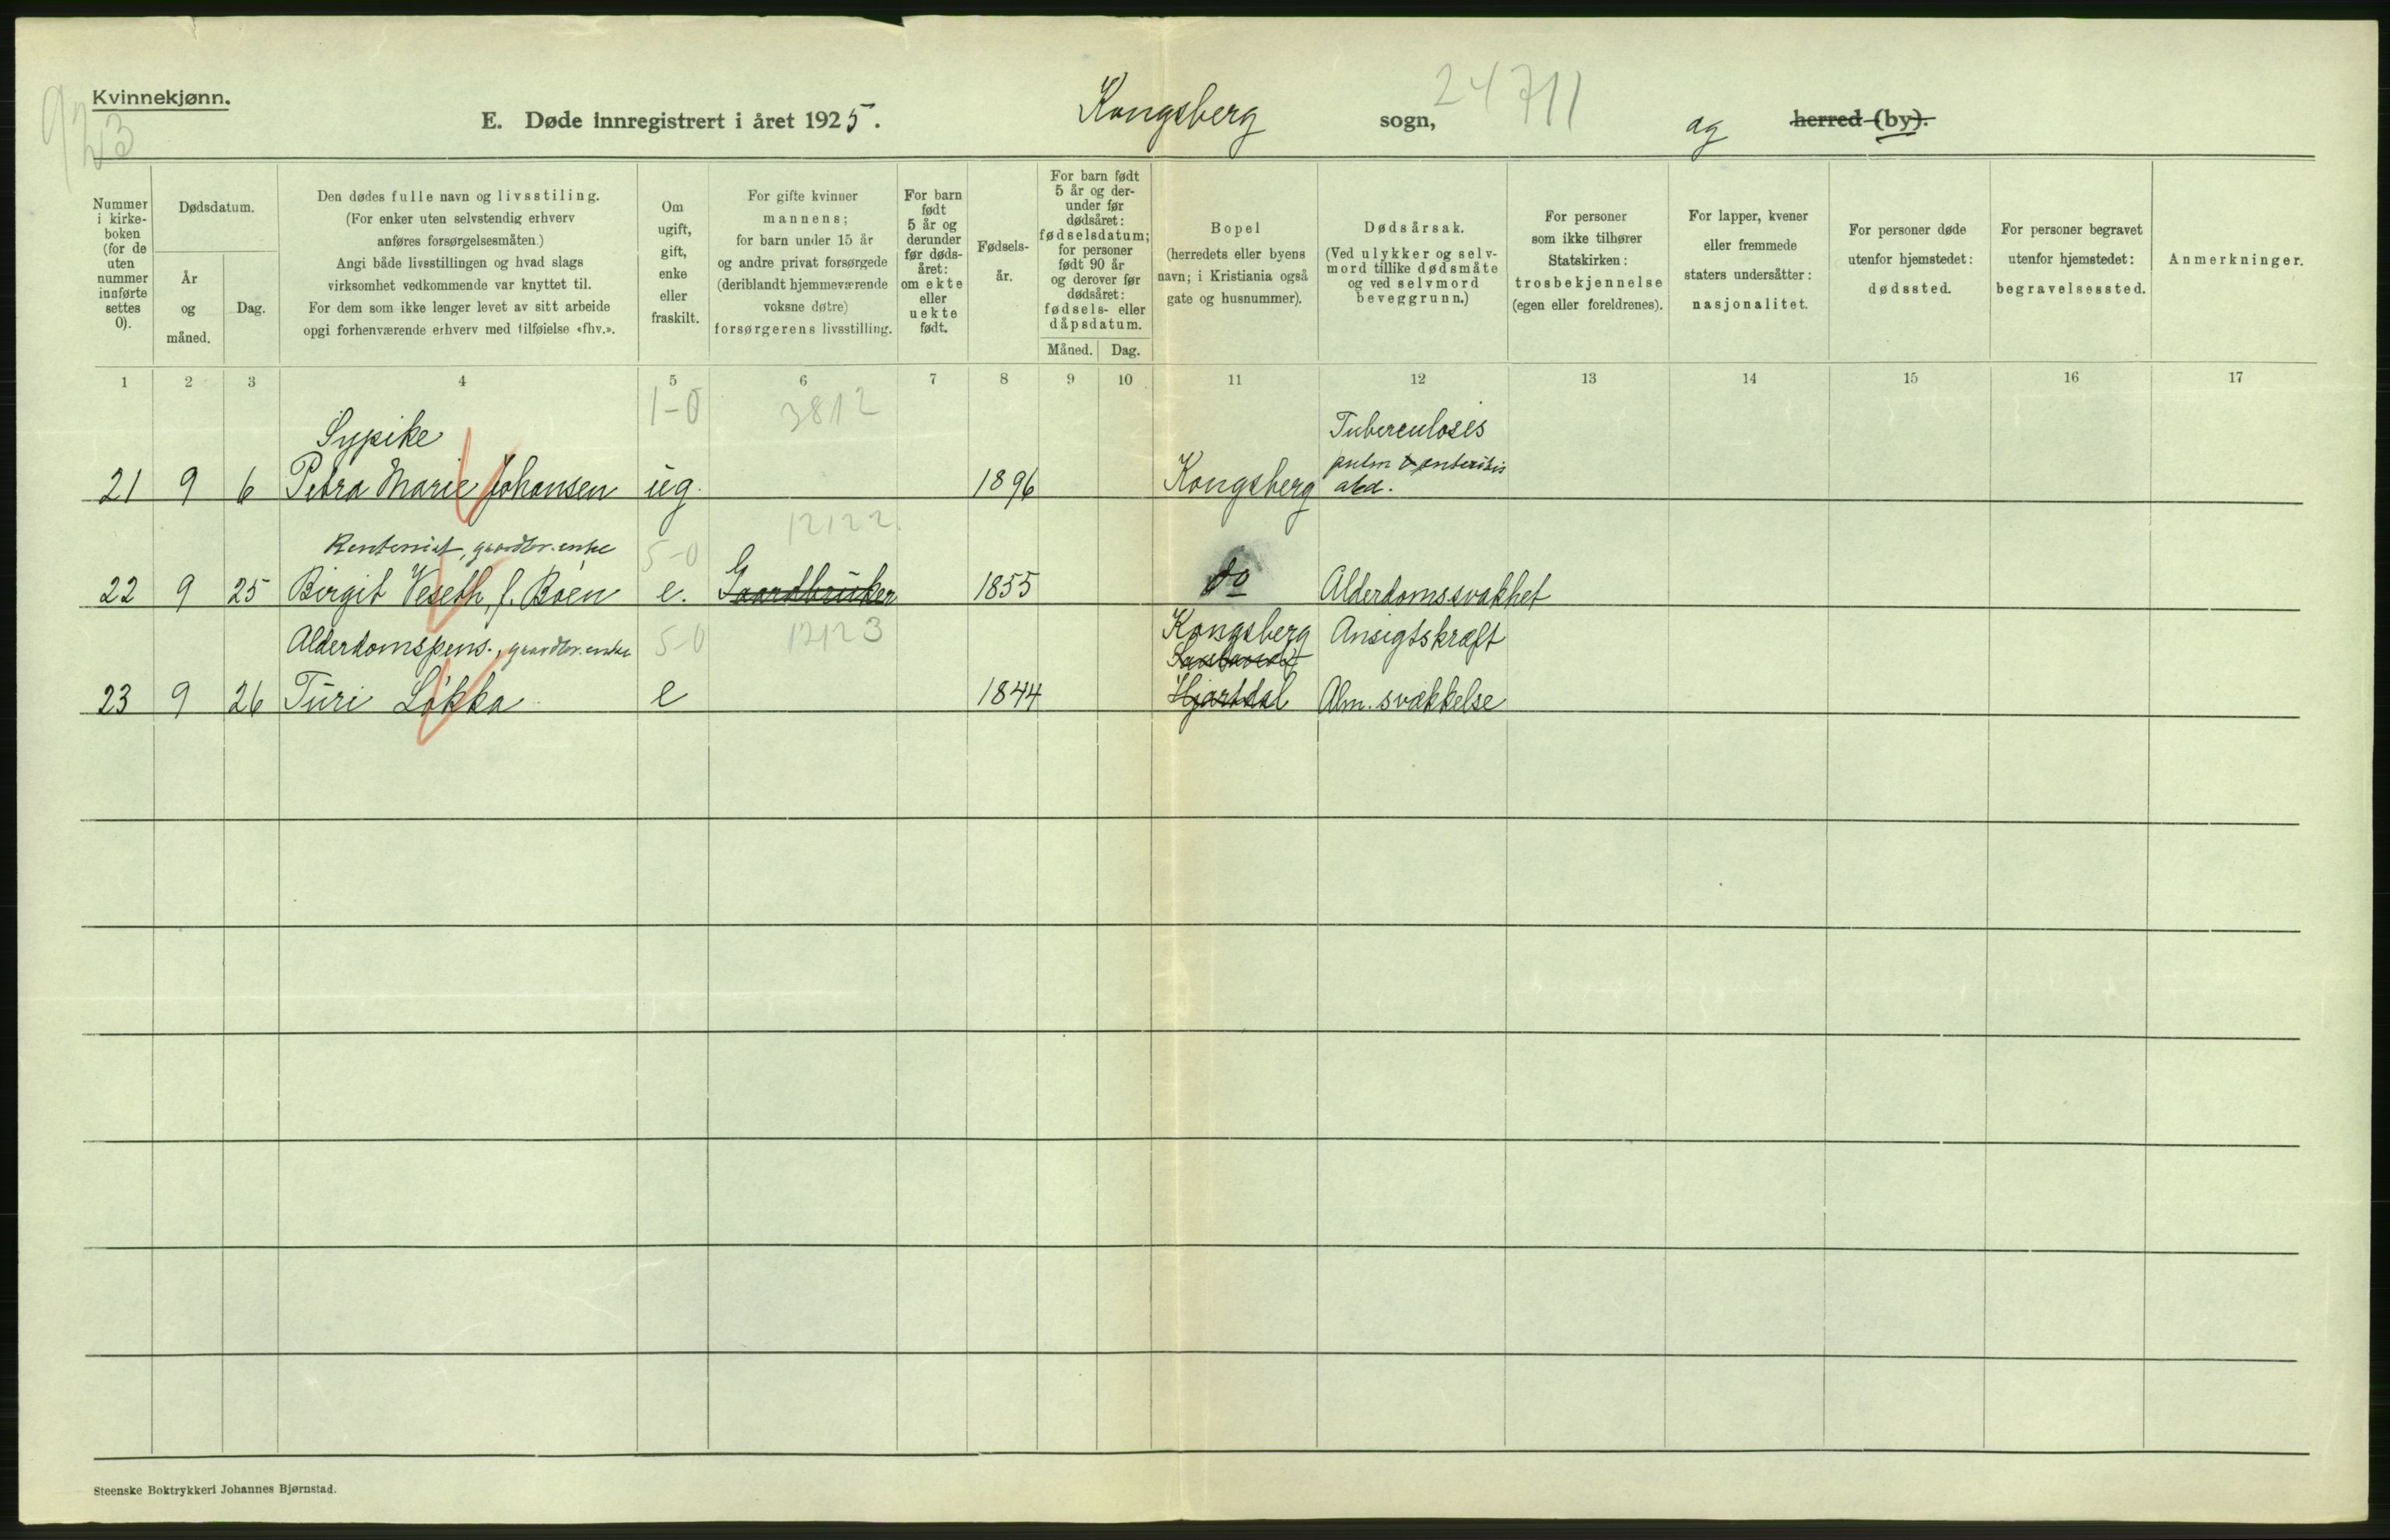 Kvinnekjønn.
923
E. Døde innregistrert i året 1925.
Kongsberg sogn,
24711
og herred (by).
Nummer i kirke-boken (for de uten nummer innførte settes 0).
Dødsdatum.
År og måned.
Dag.
Den dødes fulle navn og livsstiling.
(For enker uten selvstendig erhverv
anføres forsørgelsesmåten.)
Angi både livsstillingen og hvad slags
virksomhet vedkommende var knyttet til.
For dem som ikke lenger levet av sitt arbeide
opgi forhenværende erhverv med tilføielse «fhv.».
Om ugift, gift, enke eller fraskilt.
For gifte kvinner
mannens;
for barn under 15 år
og andre privat forsørgede
(deriblandt hjemmeværende
voksne døtre)
forsørgerens livsstilling.
For barn født 5 år og derunder før døds-året: om ekte eller uekte født.
Fødsels-år.
For barn født
5 år og der-
under før
dødsåret:
fødselsdatum;
for personer
født 90 år
og derover før
dødsåret:
fødsels- eller
dåpsdatum.
Måned. Dag.
Bopel
(herredets eller byens
navn; i Kristiania også
gate og husnummer).
Dødsårsak.
(Ved ulykker og selv-
mord tillike dødsmåte
og ved selvmord
beveggrunn.)
For personer
som ikke tilhører
Statskirken:
trosbekjennelse
(egen eller foreldrenes).
For lapper, kvener
eller fremmede
staters undersåtter:
nasjonalitet.
For personer døde
utenfor hjemstedet:
dødssted.
For personer begravet
utenfor hjemstedet:
begravelsessted.
Anmerkninger.
1 2 3 4 5 6 7 8 9 10 11 12 13 14 15 16 17
1-0 3812
Sypike Tuberculoses
pulm & enteritis
21 9 6 Petra Marie Johansen ug. 1896 Kongsberg abd.
12122
Rentenist, gaardbr. enke 5-0
22 9 25 Birgit Veseth, f. Boen e. Gaardbruker 1855 do Alderdomssvakhet
Alderdomspens., gaardbr. enke 5-0 12123 Kongsberg Ansigtskræft
23 9 26 Turi Løkka e 1844 Hjartdal Alm. svækkelse
Steenske Boktrykkeri Johannes Bjørnstad.